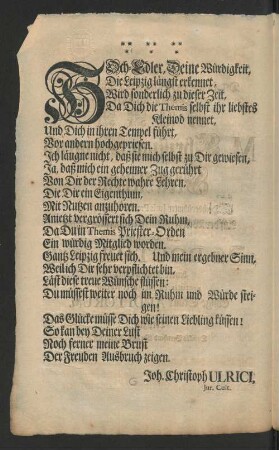 HOch-Edler, Deine Würdigkeit,
Die Leipzig längst erkennet,
Wird sonderlich zu dieser Zeit,
Da Dich die Themis selbst ihr liebstes
Kleinod nennet,
Und Dich in ihren Tempel führt,
Vor andern hochgepriesen.
Ich läugne nicht, daß sie mich selbst zu Dir gewiesen,
Ja, daß mich ein geheimer Zug gerührt
Von Dir der Rechte wahre Lehren,
Die Dir ein Eigenthum,
Mit Nutzen anzuhören.
Anietzt vergrössert sich Dein Ruhm,
Da Du in Themis Priester-Orden
Ein würdig Mitglied worden.
Gantz Leipzig freuet sich, Und mein ergebner Sinn,
Weil ich Dir sehr verpflichtet bin,
Läst diese treue Wünsche flüssen:
Du müssest weiter noch im Ruhm und Würde stei-
gen!
Das Glücke müsse Dich wie seinen Liebling küssen!
So kan bey Deiner Lust
Noch ferner meine Brust
Der Freuden Ausbruch zeigen.
Joh. Christoph ULRICI,
Jur. Cult.